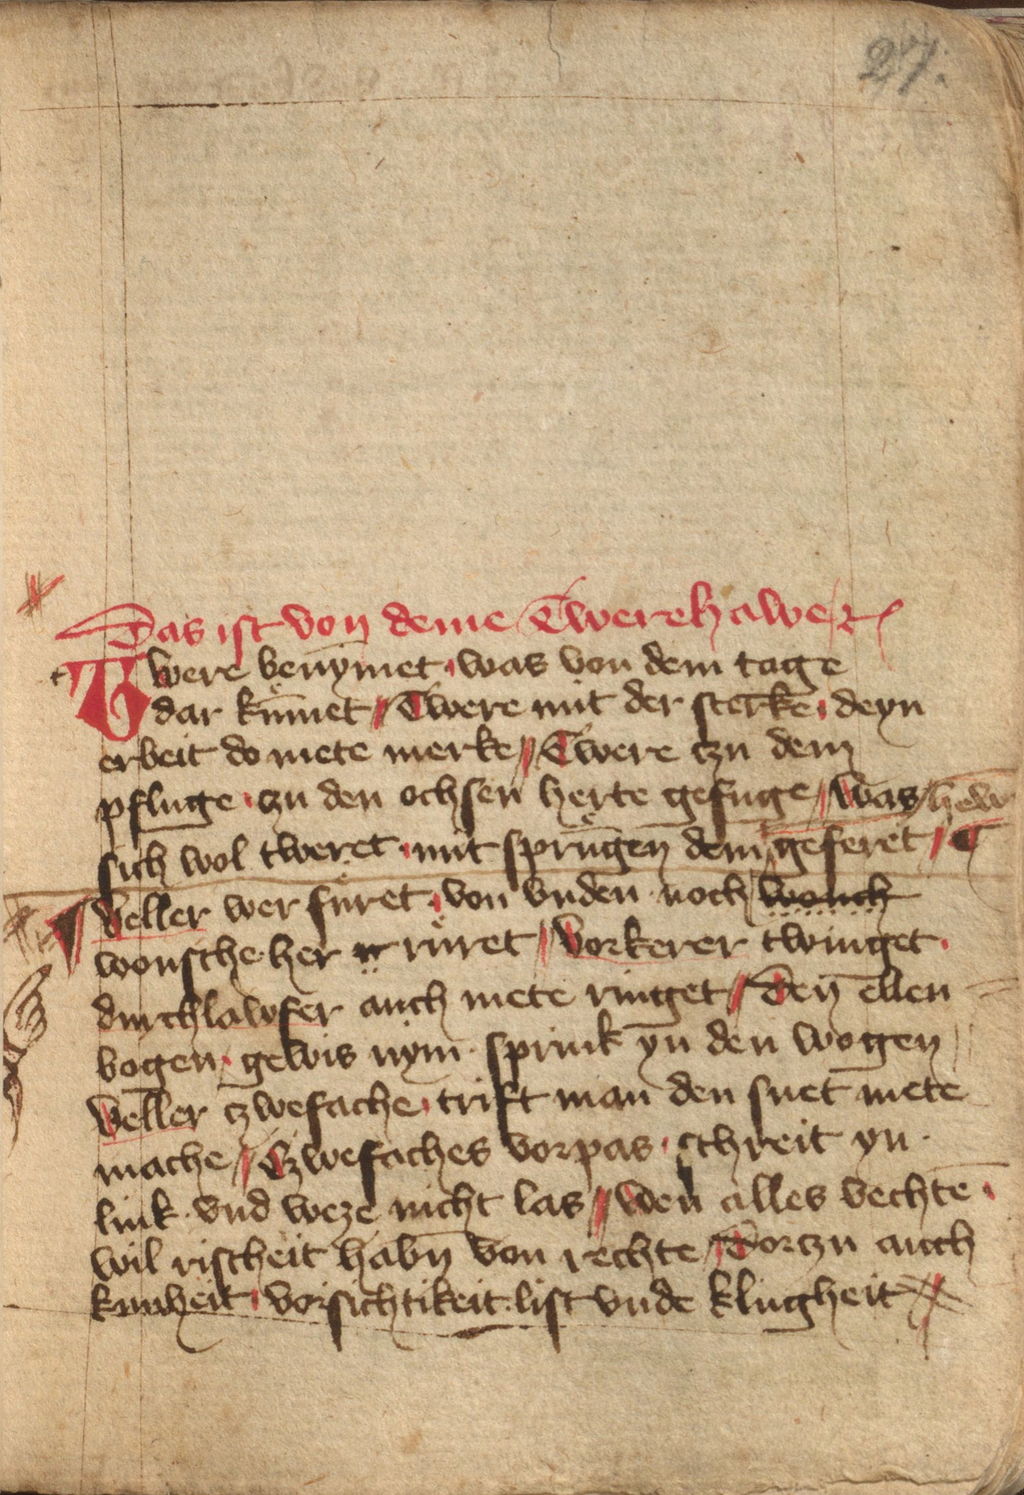 27.
Das ist von deme Twerehawe etc~
Twere benymet · was von dem tage
dar kũmet // Twere mit der sterke · deyn
erbeit do mete merke // Twere czu dem
pfluge · czu den ochsen herte gefuge // was
sich wol tweret · mit sprũgen dem hew geferet //
Veller wer füret · von vnden noch wonch
wonsche · her rüret // Vorkerer twinget ·
durchlawfer auch mete ringet // Den ellen
bogen · gewis nym · sprink yn den wogen
Veller czwefache · trift man den snet mete
mache // Czwefaches vorpas · schreit yn ·
link · vnd weze nicht las // wen alles vechtē ·
wil rischeit habñ von rechte // Dorczu auch
kunheit · vorsichtikeit · list vnde klugheit //